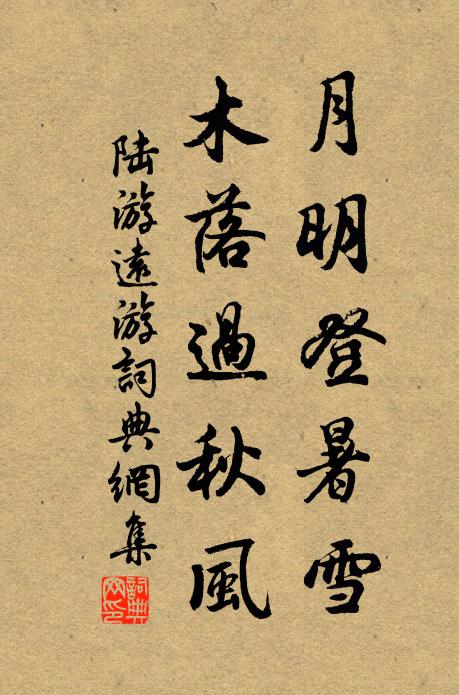 月明登暑雪
木落過秋風
陸游遠游詞典網集
詞典網印